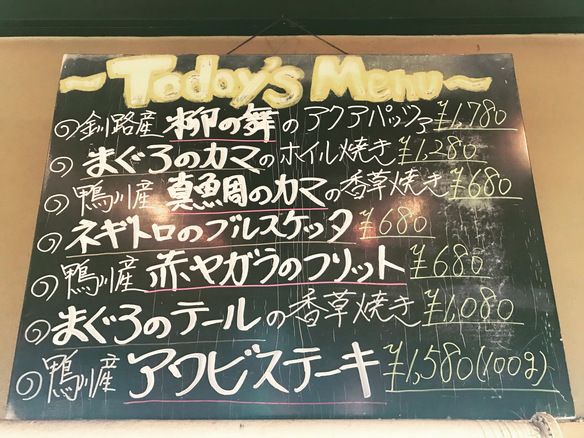 ~Today's Menu~
釧路産 柳の舞のアクアパッツァ ¥1,780
まぐろのカマのホイル焼き ¥1,280
鴨川産 真鯛のカマの香草焼き ¥680
ネギトロのブルスケッタ ¥680
鴨川産 赤ヤガラのフリット ¥680
まぐろのテールの香草焼き ¥1,080
鴨川産 アワビステーキ ¥1,580(100g)